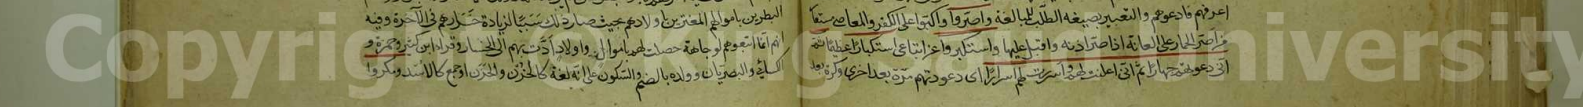 اعرفهم فادعوهم والتعبير بصيغة الطلب للمبالغة واصروا واكبوا على الكفر والمعاصى مستعار
من اصر الحمار على العانة اذا صر اذنيه واقبل عليها واستكبروا عن اتباعى استكبارا عظيما ثم
انى دعوتهم جهارا ثم انى اعلنت لهم واسررت لهم اسرارا اى دعوتهم مرة بعد اخرى وكرة بعد
البطرين باموالهم المغترين باولادهم بحيث صار ذلك سببا لزيادة خسارهم فى الآخرة وفيه
انهم انما اتبعوهم لوجاهة حصلت لهم باموال واولاد ادت بهم الى الخسار وقرأ ابن كثير وحمزة و
الكسائى والبصريان وولده بالضم والسكون على انه لغة كالحزن والحزن او جمع كالاسد ومكروا
Copyright © King Saud University